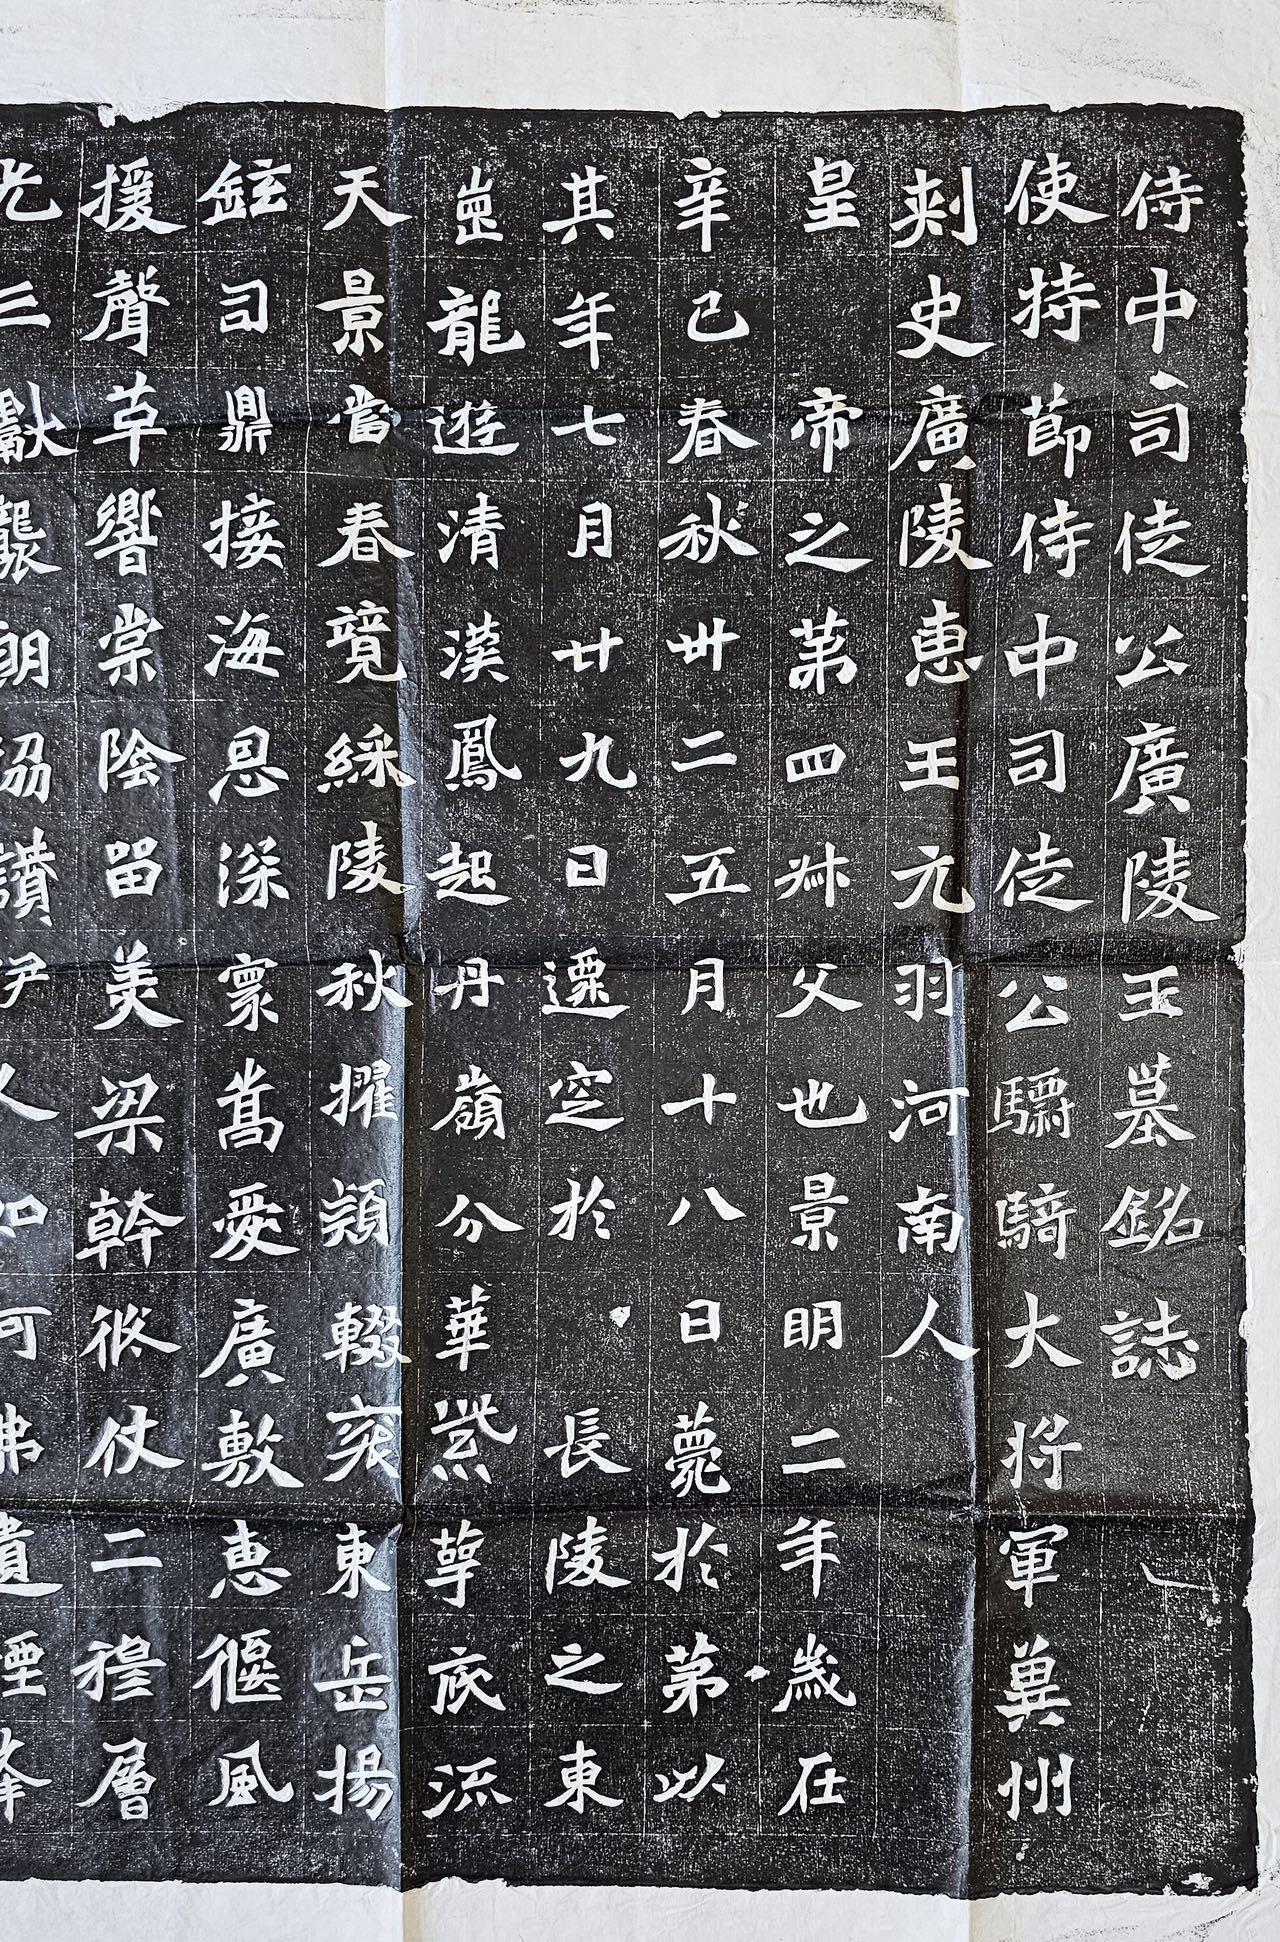 侍中司徒公廣陵王墓銘誌
使持節侍中司徒公驃騎大將軍冀州
刺史廣陵惠王元羽河南人
皇帝之第四叔父也景明二年歲在
辛巳春秋卅二五月十八日薨於第以
其年七月廿九日遷窆於長陵之東
崗龍遊清漢鳳起丹嶺分華紫萼底流
天景當春競綵陵秋擢穎輟袞東岳揚
鉉司鼎接海恩深寰嵩愛廣敷惠偃風
援聲草響棠陰留美梁幹倏仗二穆層
光三獻襲朗協讚伊人如何弗遺烟峰